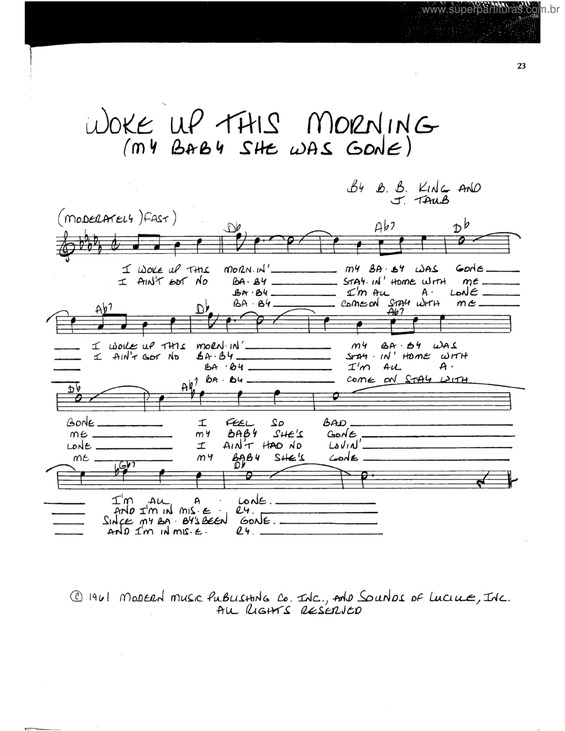 www.superpartituras.com.br
23
WOKE UP THIS MORNING
(MY BABY SHE WAS GONE)
BY B. B. KING AND
J. TAUB
(MODERATELY FAST)
Db Ab7 Db
I WOKE UP THIS MORN-IN' MY BA-BY WAS GONE
I AIN'T GOT NO BA-BY STAY-IN' HOME WITH ME
BA-BY I'M ALL A-LONE
BA-BY COME ON STAY WITH ME
Ab7 Db Ab7
I WOKE UP THIS MORN-IN' MY BA-BY WAS
I AIN'T GOT NO BA-BY STAY-IN' HOME WITH
BA-BY I'M ALL A-
BA-BY COME ON STAY WITH
Db Ab7
GONE I FEEL SO BAD
ME MY BABY SHE'S GONE
LONE I AIN'T HAD NO LOVIN'
ME MY BABY SHE'S GONE
Gb7 Db
I'M ALL A-LONE.
AND I'M IN MIS-E-RY.
SINCE MY BA-BY'S BEEN GONE.
AND I'M IN MIS-E-RY.
© 1961 MODERN MUSIC PUBLISHING CO. INC., AND SOUNDS OF LUCILLE, INC.
ALL RIGHTS RESERVED